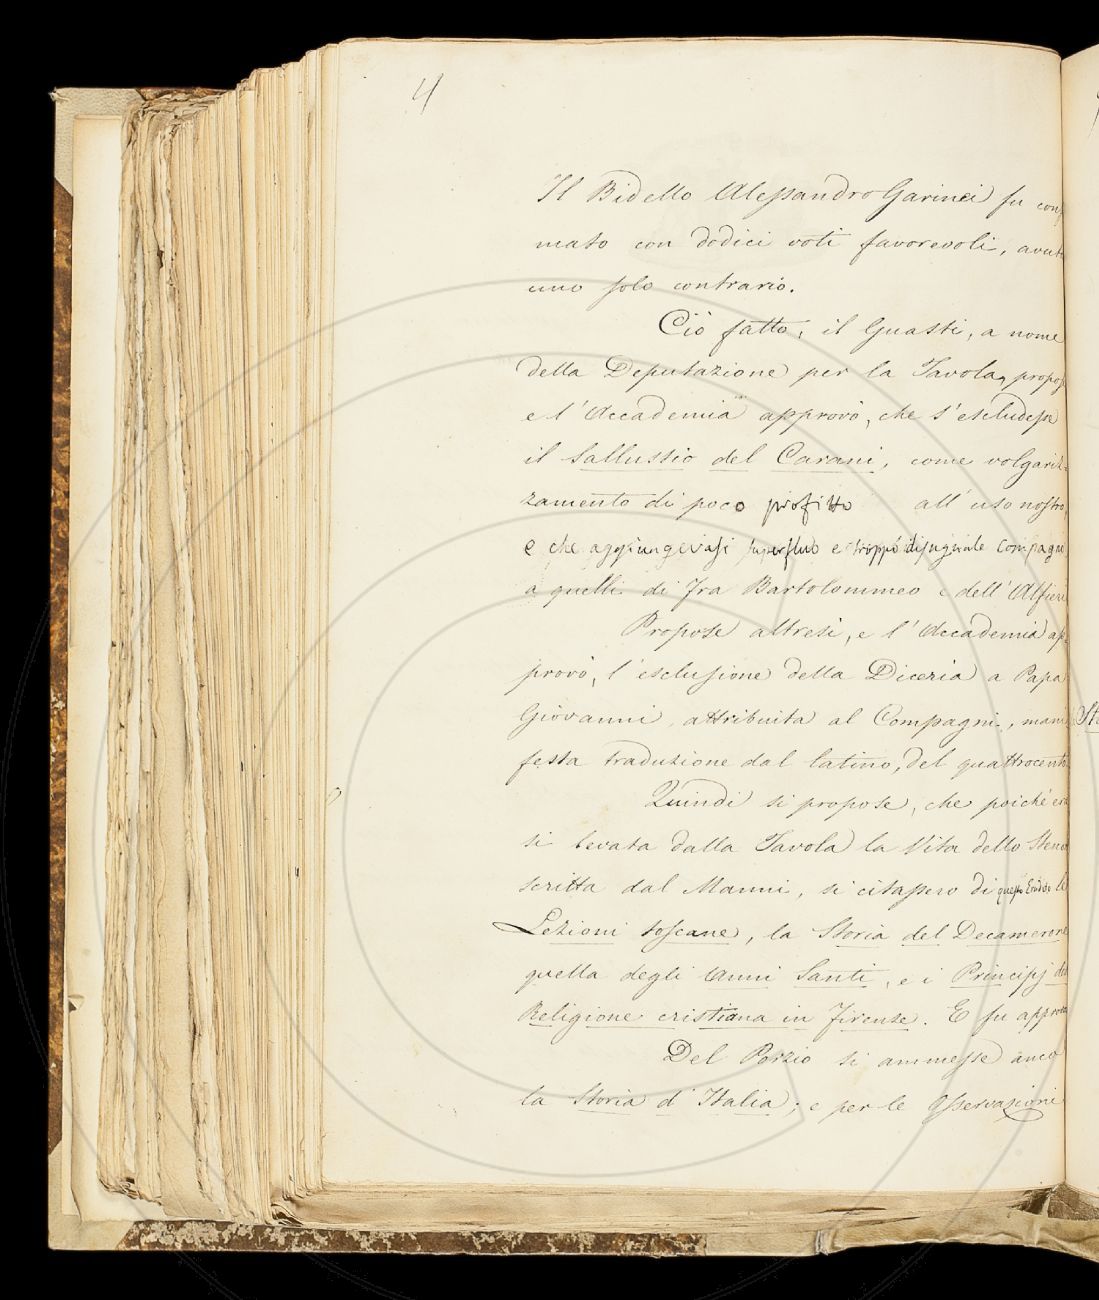 4
Il Bidello Alessandro Garinei fu conf
mato con dodici voti favorevoli, avut
uno solo contrario.
Ciò fatto, il Guasti, a nome
della Deputazione per la Tavola, propos
e l'Accademia approvò, che s'escludesse
il Sallustio del Carani, come volgariz-
zamento di poco profitto all'uso nostro,
e che aggiungevasi superfluo e troppo disuguale compagn
a quelli di Fra Bartolommeo e dell'Alfieri
Propose altresì, e l'Accademia ap-
provò, l'esclusione della Diceria a Papa
Giovanni, attribuita al Compagni, mani
festa traduzione dal latino, del quattrocento.
Quindi si propose, che poiché era
si levata dalla Tavola la Vita dello Stenon
scritta dal Manni, si citassero di questo le
Lezioni toscane, la Storia del Decamerone
quella degli Anni Santi, e i Principj del
Religione cristiana in Firenze. E fu approva
Del Porzio si ammesse anco
la Storia d'Italia; e per le Osservazioni